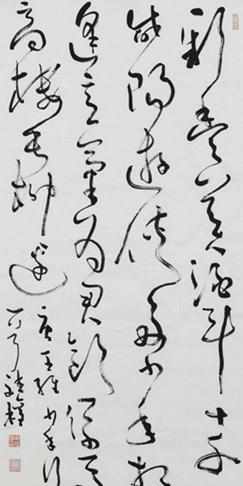 新丰美酒斗十千
咸阳游侠多少年相
逢意气为君饮系马
高楼垂柳边
唐王维少年行